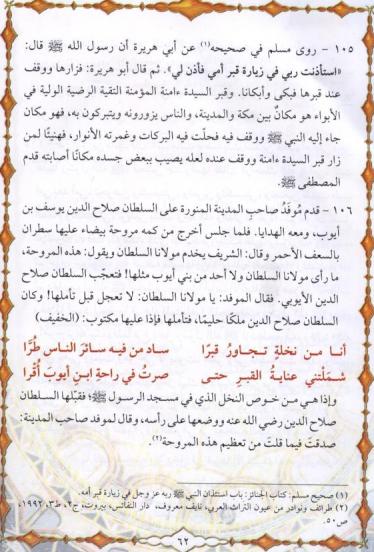 ١٠٥ - روى مسلم في صحيحه(١) عن أبي هريرة أن رسول الله ﷺ قال:
«استأذنت ربي في زيارة قبر أمي فأذن لي». ثم قال أبو هريرة: فزارها ووقف
عند قبرها فبكى وأبكانا. وقبر السيدة ءامنة المؤمنة التقية الرضية الولية في
الأبواء هو مكانٌ بين مكة والمدينة، والناس يزورونه ويتبركون به، فهو مكان
جاء إليه النبي ﷺ ووقف فيه فحلّت فيه البركات وغمرته الأنوار، فهنيئًا لمن
زار قبر السيدة ءامنة ووقف عنده لعله يصيب ببعض جسده مكانًا أصابته قدم
المصطفى ﷺ.
١٠٦ - قدم مُوفَدُ صاحب المدينة المنورة على السلطان صلاح الدين يوسف بن
أيوب، ومعه الهدايا. فلما جلس أخرج من كمه مروحة بيضاء عليها سطران
بالسعف الأحمر وقال: الشريف يخدم مولانا السلطان ويقول: هذه المروحة،
ما رأى مولانا السلطان ولا أحد من بني أيوب مثلها! فتعجّب السلطان صلاح
الدين الأيوبي. فقال الموفد: يا مولانا السلطان: لا تعجل قبل تأملها! وكان
السلطان صلاح الدين ملكًا حليمًا، فتأملها فإذا عليها مكتوب: (الخفيف)
أنا من نخلةٍ تجاورُ قبرًا ساد من فيه سائرَ الناس طُرَّا
شملَتْني عنايةُ القبرِ حتى صرتُ في راحةِ ابنِ أيوبَ أُقْرا
وإذا هي من خوص النخل الذي في مسجد الرسول ﷺ؛ فقبّلها السلطان
صلاح الدين رضي الله عنه ووضعها على رأسه، وقال لموفد صاحب المدينة:
صدقتَ فيما قلتَ من تعظيم هذه المروحة(٢).
(١) صحيح مسلم: كتاب الجنائز: باب استئذان النبي ﷺ ربه عز وجل في زيارة قبر أمه.
(٢) طرائف ونوادر من عيون التراث العربي، نايف معروف، دار النفائس، بيروت، ج٢، ط٣، ١٩٩٢،
ص٥٠.
٦٢